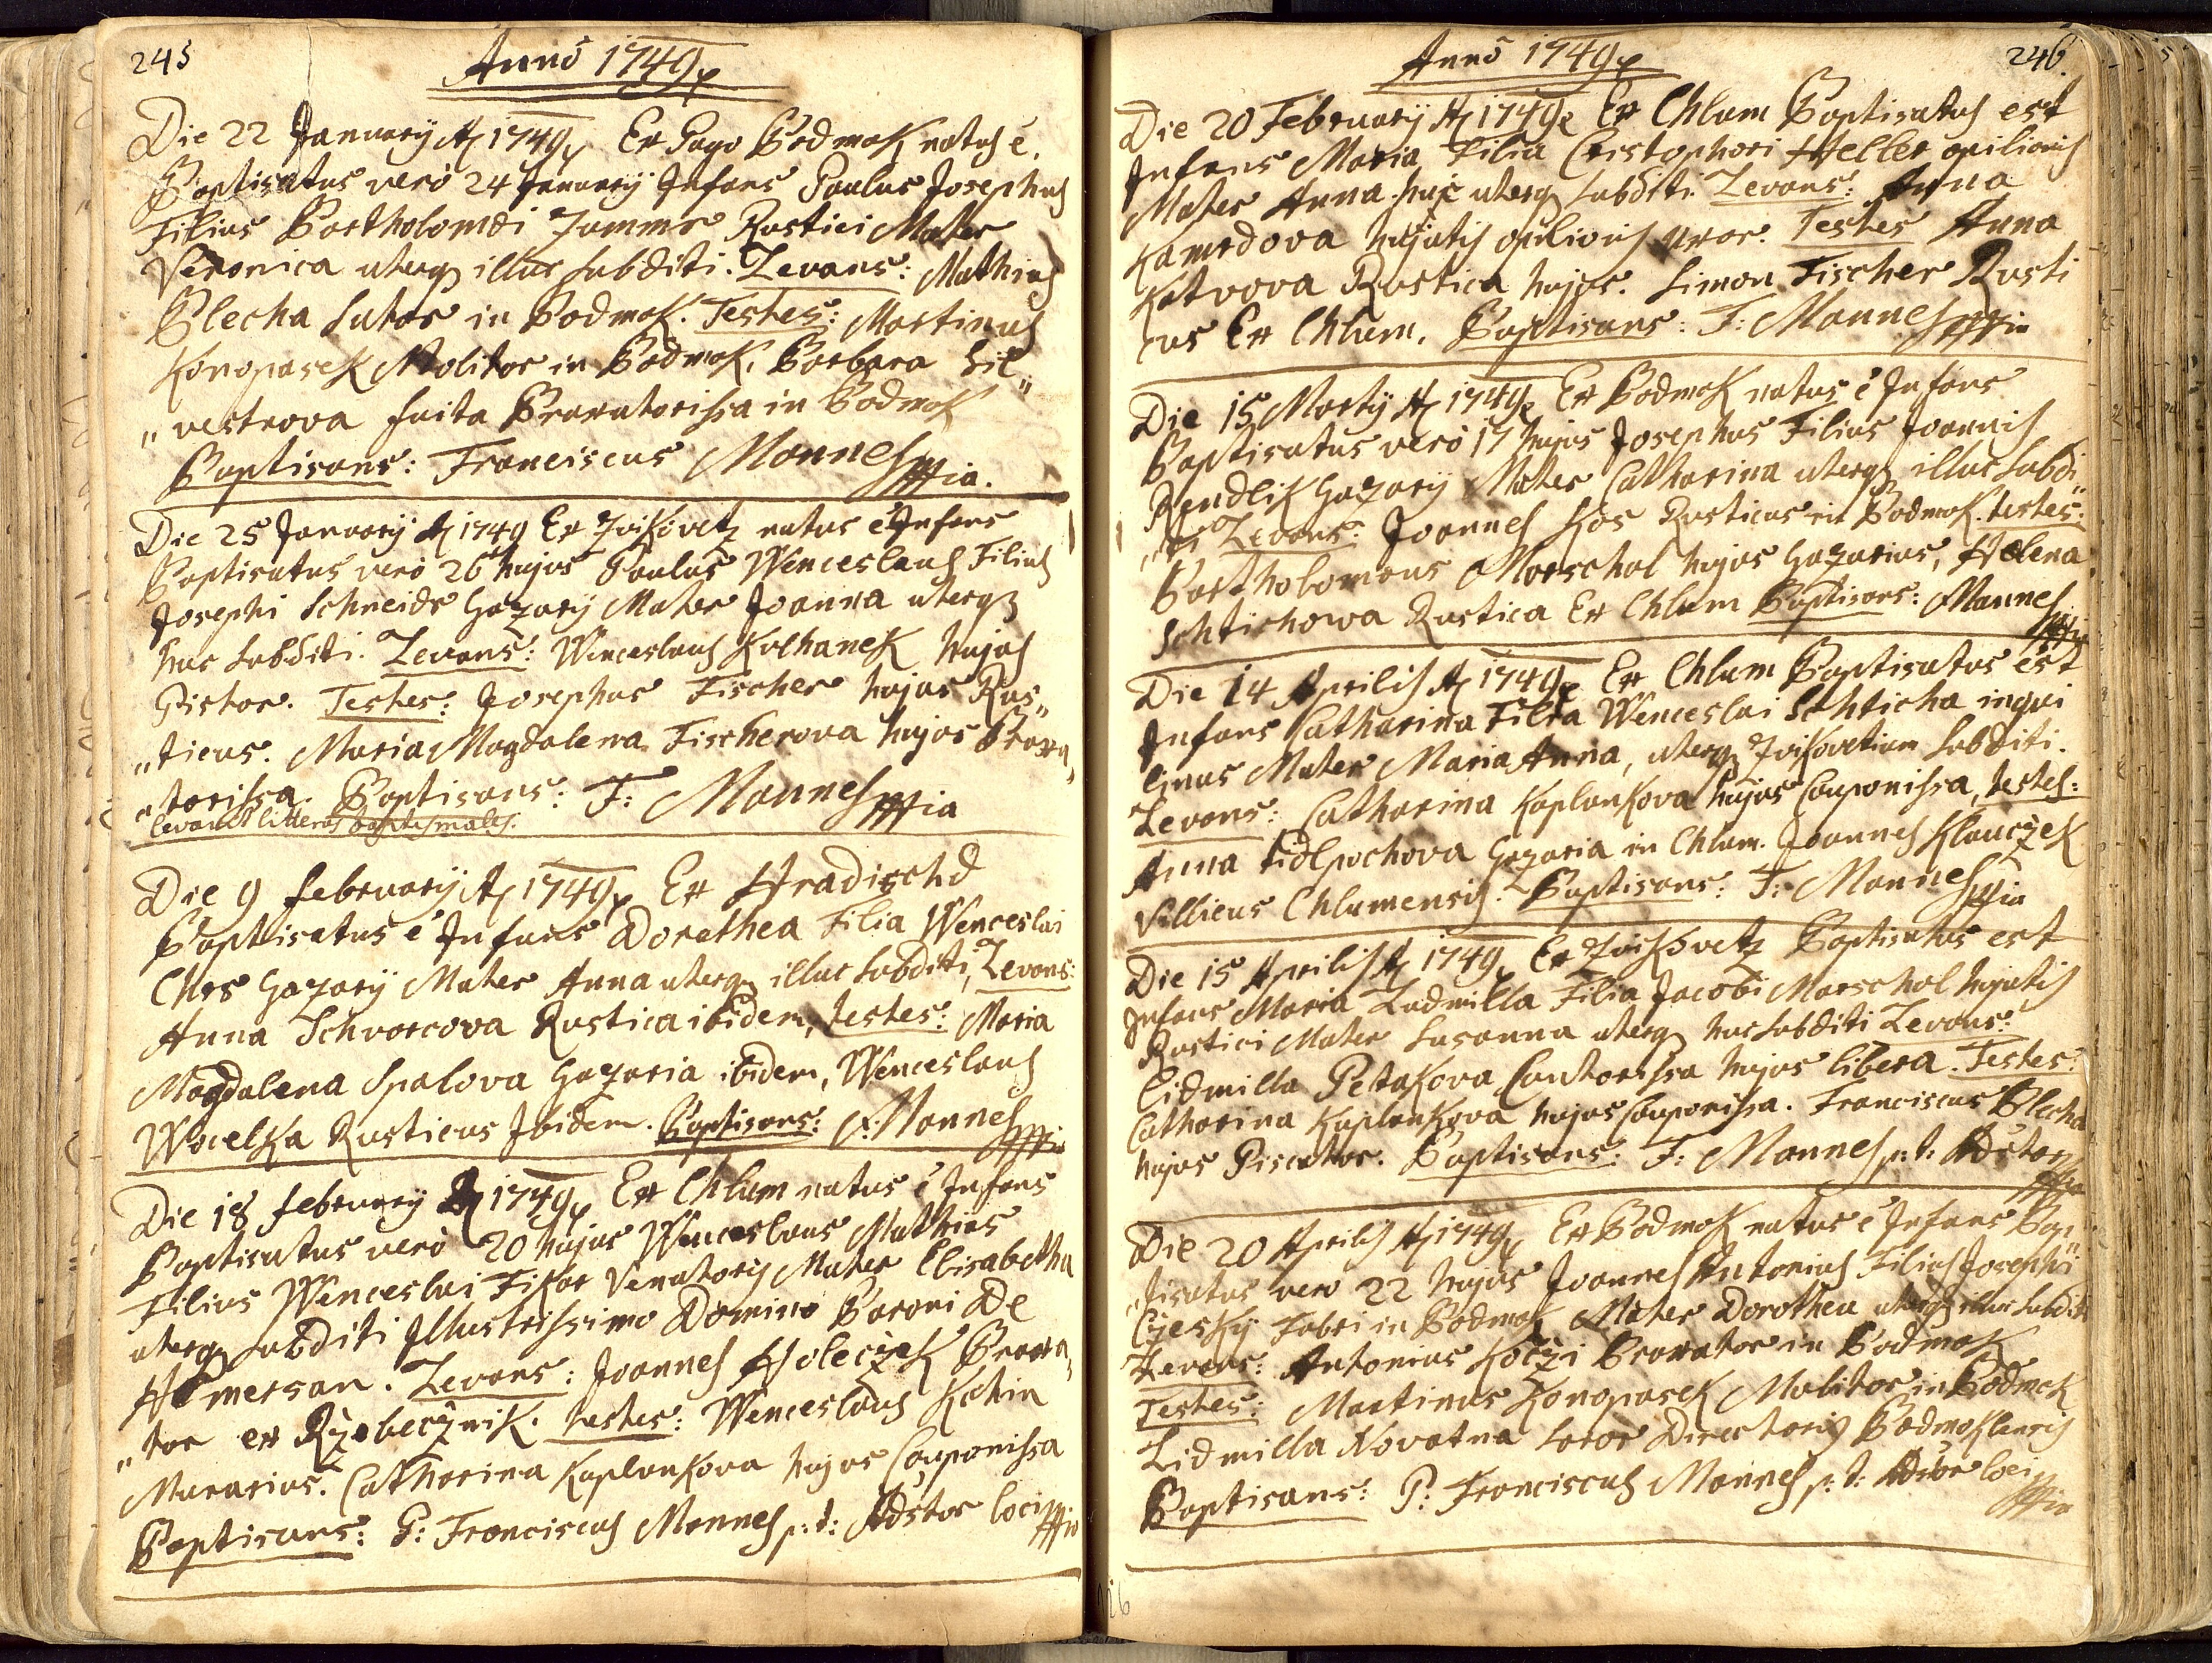 245
Anno 1749
Die 22 January A 1749 Ex Pago Podmok natus e.
Baptisatus vero 24 January Infans Paulus Josephus
Filius Bartholomæi Rustici Mater
Veronica uterq illuc subditi. Levans: Mathias
Blecha Sutor in Podmok. Testes: Martinus
Konopasek Molitor in Podmok, Barbara Sil„
„vestrova Braxatorissa in Podmok
Baptisans: Franciscus Mannes mppia.
Die 25 January A 1749 Ex Zvikovetz natus e Infans
Baptisatus vero 26 hujus Paulus Wenceslaus Filius
Josephi Schneidr Gazary Mater Joanna uterq
huc subditi. Levans: Wenceslaus Kolhanek hujus
Pistor. Testes: Josephus Fischer hujus Rus„
„ticus. Maria Magdalena Fischerova hujus Braxa„
„torissa. Baptisans: F: Mannes mppia
levavit litteras baptismales.
Die 9 february A 1749 Ex Hradischd
Baptisatus e Infans Dorothea Filia Wenceslai
Gazary Mater Anna uterq illuc subditi, Levans:
Anna Schvarcova Rustica ibidem, testes: Maria
Magdalena Spalova Gazaria ibidem, Wenceslaus
Wocelka Rusticus Ibidem. Baptisans: F: Mannes mppia
Die 18 february A 1749 Ex Chlum natus e Infans
Baptisatus vero 20 hujus Wenceslaus Mathias
Filius Wenceslai Fikar Venatoris Mater Elisabetha
uterq subditi Illustrissimo Domino Baroni De
Hemersan. Levans: Joannes Holeczek Braxa„
„tor ex Rzebecznik. testes: Wenceslaus Kchin
Murarius. Catharina Kaplankova hujus Cauponissa
Baptisans: P: Franciscus Mannes p: t: Adstor loci mppia
246
Anno 1749
Die 20 February A 1749 Ex Chlum Baptisatus est
Infans Maria Filia Cristophori Heller opilionis
Mater Anna huic uterq subditi. Levans: Anna
Kamrdova hujatis opilionis uxor. Testes Anna
Kotrova Rustica hujus. Simon Fischer Rusti
cus Ex Chlum. Baptisans: F: Mannes mppia
Die 15 Marty A 1749 Ex Podmok natus e Infans
Baptisatus vero 17 hujus Josephus Filius Joannis
Rendlik Gazary Mater Catharina uterq illuc Subdi„
„ti Levans: Joannes Kos Rusticus in Podmok. testes:
Bartholomæus Marschal hujus Gazarius, Helena
Schtichowa Rustica Ex Chlum Baptisans: Mannes mppia
Die 14 Aprilis A 1749 Ex Chlum Baptisatus est
Infans Catharina Filia Wenceslai Schticha inqui
linus Mater Maria Anna, uterq Zvikovetium Subditi.
Levans: Catharina Kaplankova hujus Cauponissa, testes:
Anna Gazaria in Chlum. Joannes Klauczek
Villicus Chlumensis. Baptisans: F: Mannes mppia
Die 15 Aprilis A 1749 Ex Zvikovetz Baptisatus est
Infans Maria Ludmilla Filia Jacobi Marschal hujatis
Rustici Mater Susanna uterq huc Subditi Levans:
Lidmilla Petakova Cantorissa hujus libera. Testes:
Catharina Kaplankova hujus Cauponissa. Franciscus Blecha
hujus Piscator. Baptisans: F: Mannes p: t: Adstor mppia
Die 20 Aprilis A 1749 Ex Podmok natus e Infans Bap„
„tisatus vero 22 hujus Joannes Antonius Filius Josephi
Czesky Fabri in Podmok Mater Dorothea uterq illuc Subditi
Levans: Antonius Koczi Braxator in Podmok
Testes: Martinus Konopasek Molitor in Podmok
Lidmilla Novotna Soror Directoris Podmoklensis
Baptisans: P: Franciscus Mannes p: t: Adstor loci mppia